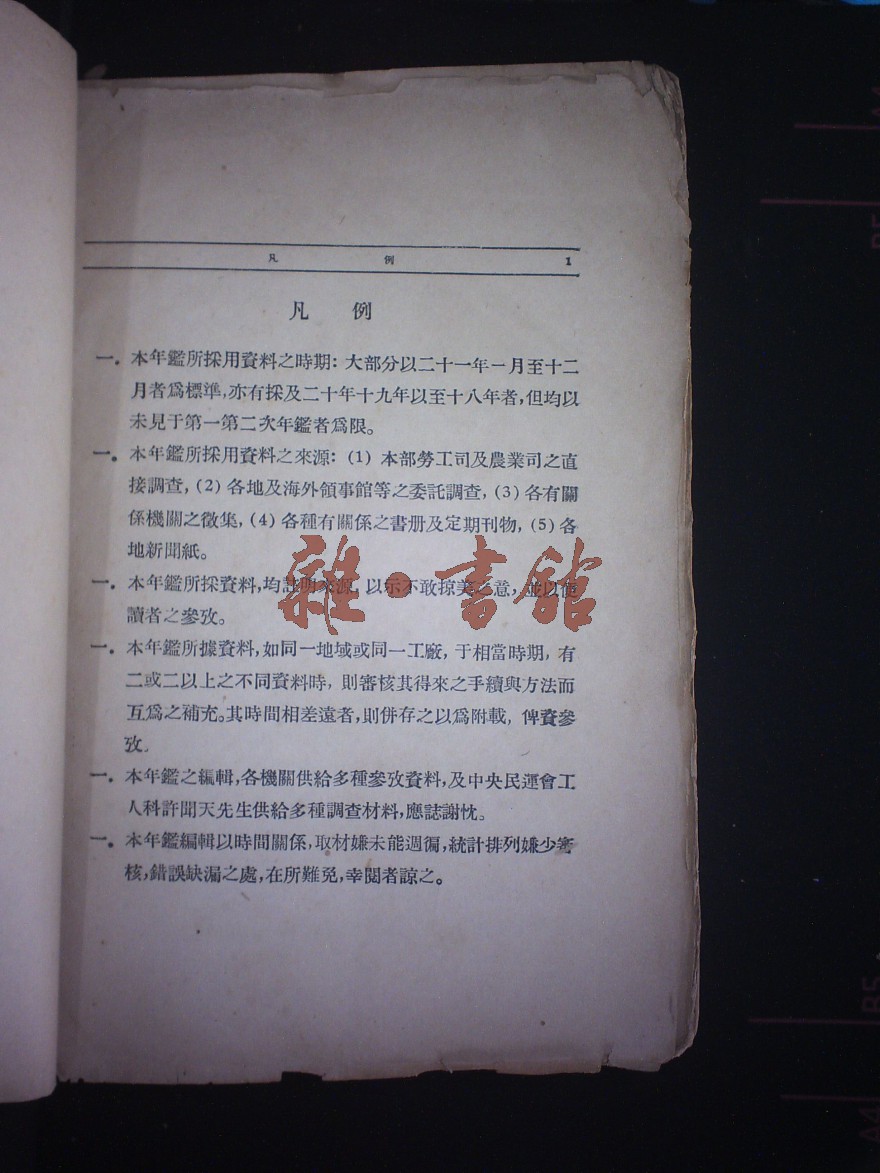 凡 例 1
凡 例
一. 本年鑑所採用資料之時期: 大部分以二十一年一月至十二
月者爲標準,亦有採及二十年十九年以至十八年者,但均以
未見于第一第二次年鑑者爲限。
一. 本年鑑所採用資料之來源: (1) 本部勞工司及農業司之直
接調查, (2) 各地及海外領事館等之委託調查, (3) 各有關
係機關之徵集, (4) 各種有關係之書册及定期刊物, (5) 各
地新聞紙。
一. 本年鑑所採資料,均註明來源, 以示不敢掠美之意, 並以便
讀者之參攷。
一. 本年鑑所據資料, 如同一地域或同一工廠, 于相當時期, 有
二或二以上之不同資料時, 則審核其得來之手續與方法而
互爲之補充。其時間相差遠者,則併存之以爲附載, 俾資參
攷.
一. 本年鑑之編輯,各機關供給多種參攷資料,及中央民運會工
人科許聞天先生供給多種調查材料,應誌謝忱。
一. 本年鑑編輯以時間關係,取材嫌未能週徧,統計排列嫌少審
核,錯誤缺漏之處,在所難免,幸閱者諒之。
雜·書館
A4
B5
B5
A4